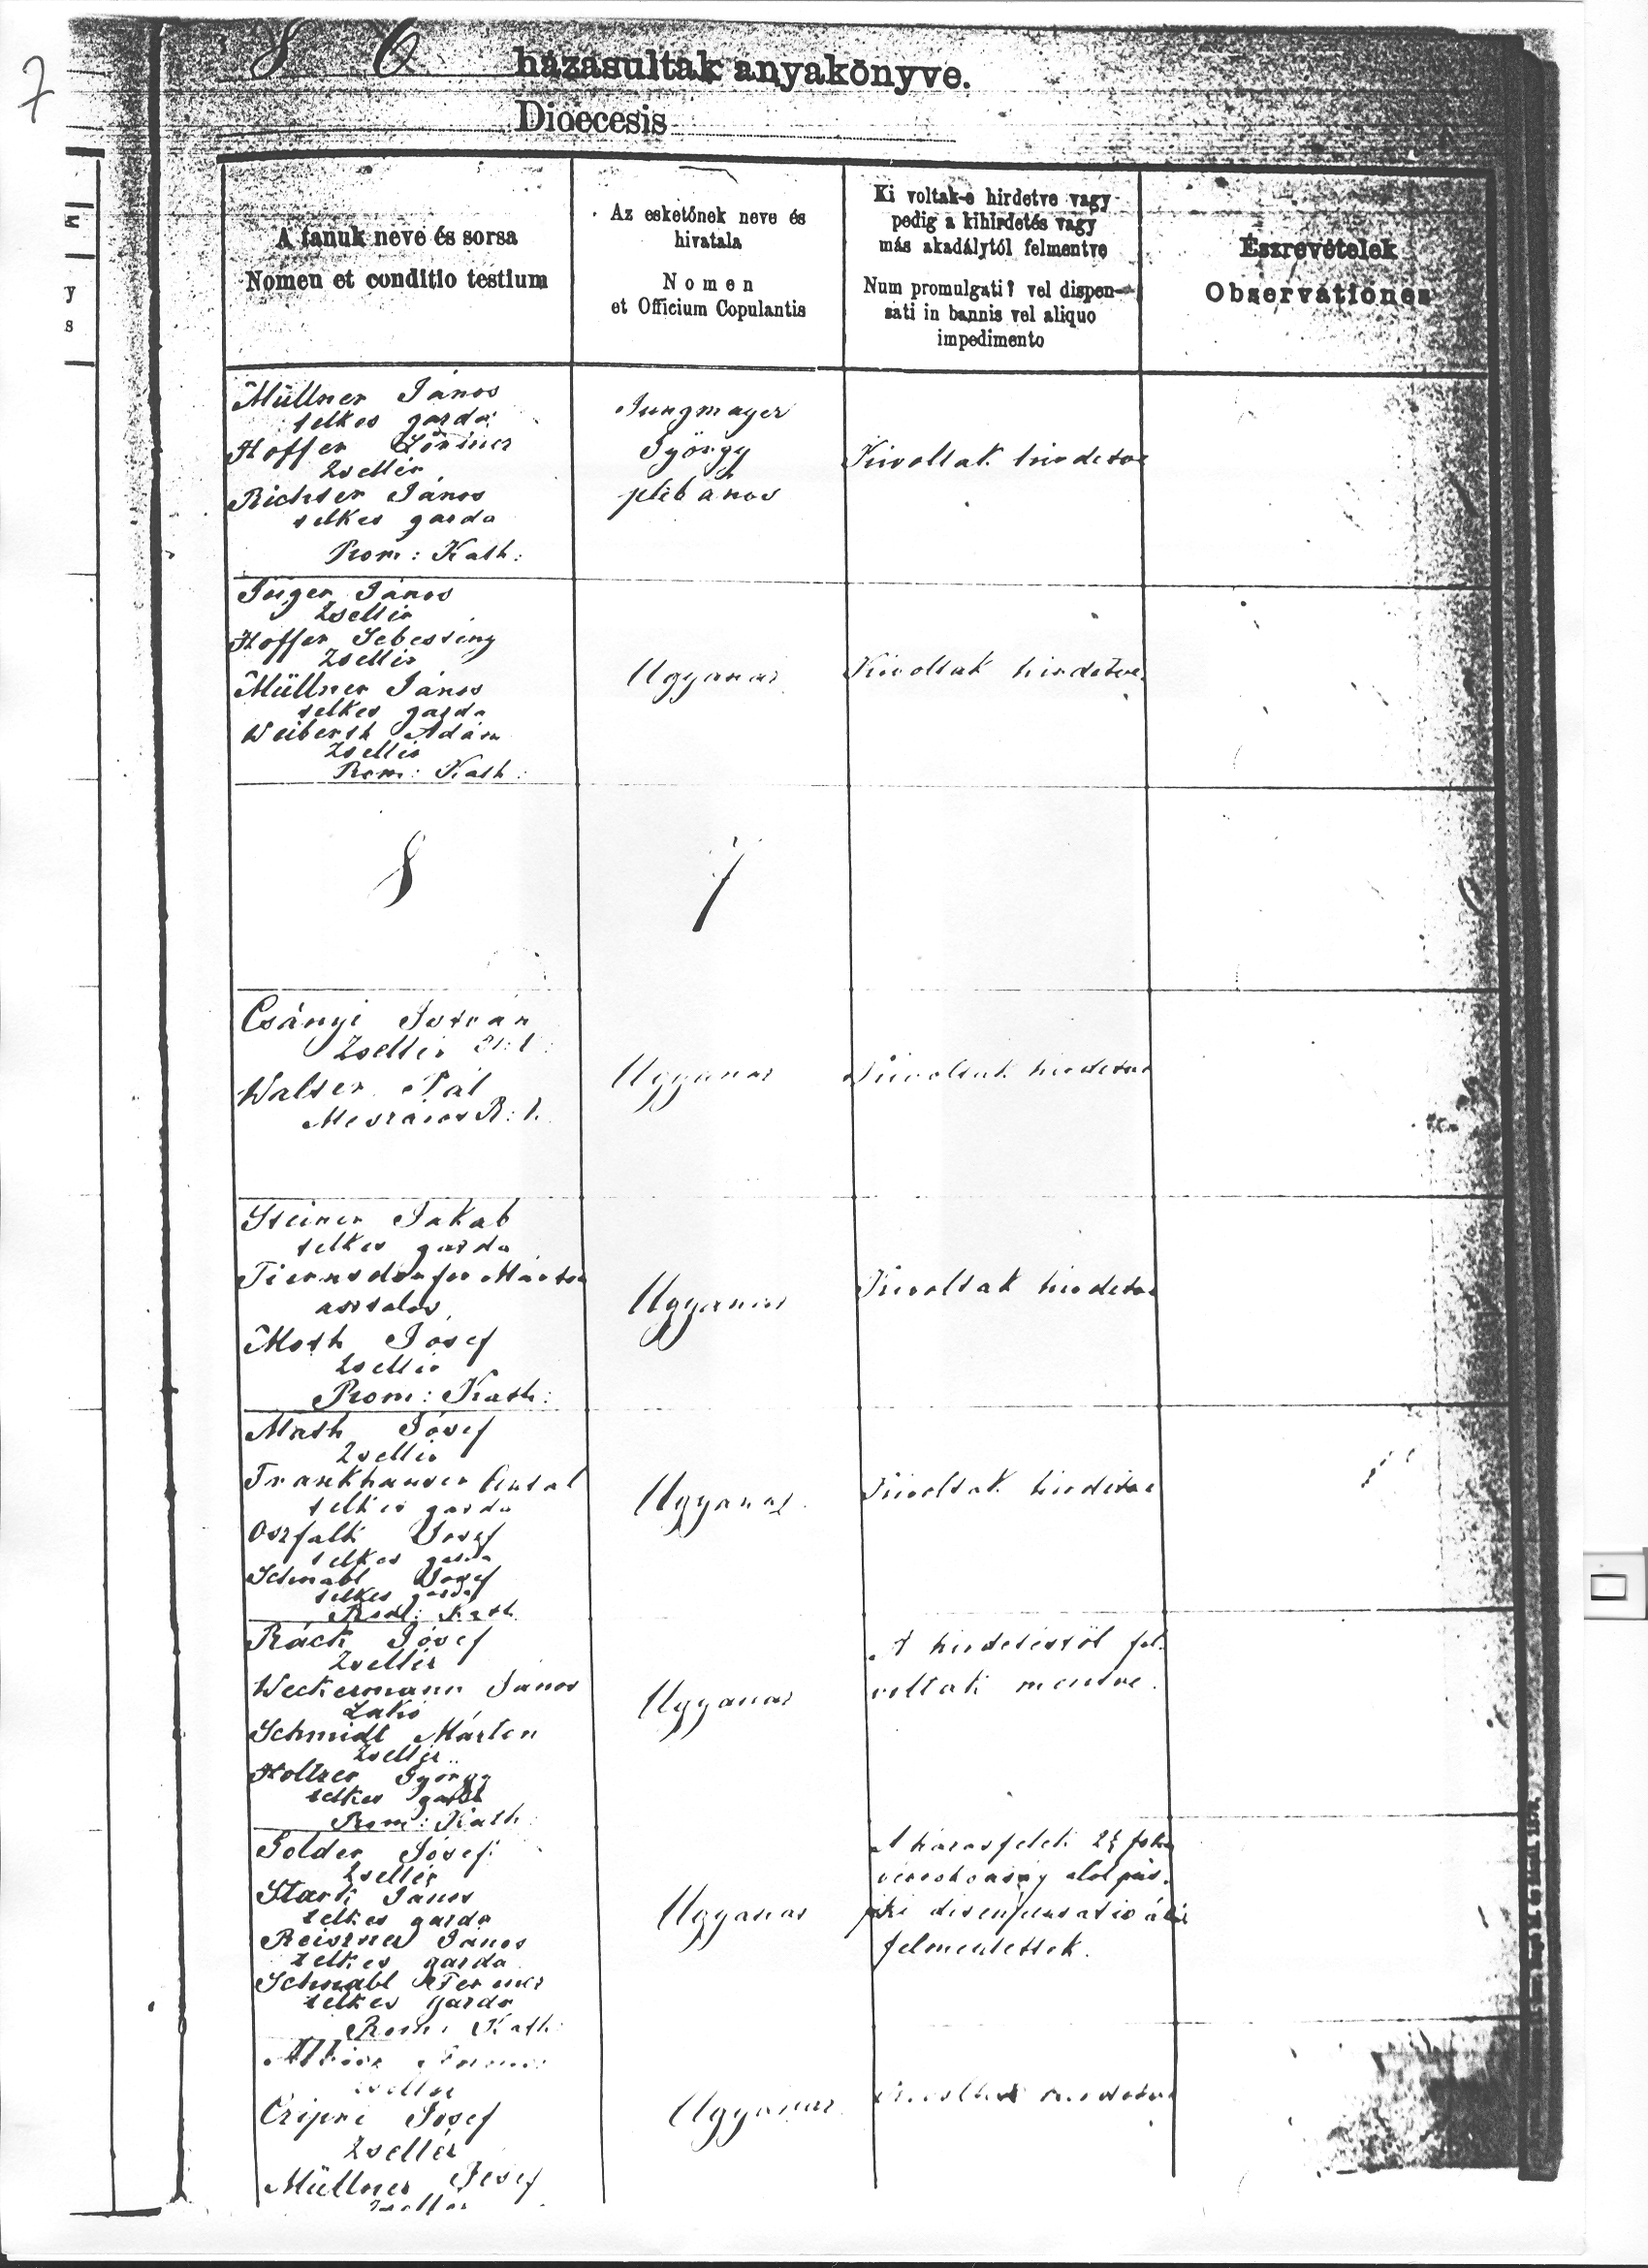 7
8 6 házasultak anyakönyve.
Dioecesis
M
y
s
A tanuk neve és sorsa
Nomen et conditio testium
Az esketőnek neve és
hivatala
Nomen
et Officium Copulantis
Ki voltak-e hirdetve vagy
pedig a kihirdetés vagy
más akadálytól felmentve
Num promulgati? vel dispen-
sati in bannis vel aliquo
impedimento
Észrevételek
Observationes
Müllner János
telkes gazda
Hoffer Lőrincz
Zsellér
Richter János
telkes gazda
Rom: Kath:
Jungmayer
György
plébános
Kivoltak hirdetve
János
Zsellér
Hoffer Sebestény
Zsellér
Müllner János
telkes gazda
Weiberth Ádám
Zsellér
Rom: Kath:
Ugyanaz
Kivoltak hirdetve
8
7
Csányi István
Zsellér
Walter Pál
Mészáros R: k.
Ugyanaz
Kivoltak hirdetve
Steiner Jakab
telkes gazda
Márton
asztalos
Moth Józef
Zsellér
Rom: Kath:
Ugyanaz
Kivoltak hirdetve
Math Józef
Zsellér
Frankhauser Antal
telkes gazda
Oszfalk Josef
telkes gazda
Schnabl Josef
telkes gazda
Kath
Ugyanaz
Kivoltak hirdetve
Ráck Józef
Zsellér
Weckermann János
Lakó
Schmidt Márton
Zsellér
Holtzer György
telkes gazda
Rom: Kath:
Ugyanaz
A hirdetéstől fel
voltak mentve.
Golder Józef
Zsellér
Stark János
telkes gazda
Reiszner János
telkes gazda
Schnabl Ferencz
telkes gazda
Rom: Kath:
Ugyanaz
A harasfeleti
felmentettek.
zsellér
Czipri Josef
Zsellér
Müllner Josef
zsellér
Ugyanaz
Kivoltak hirdetve